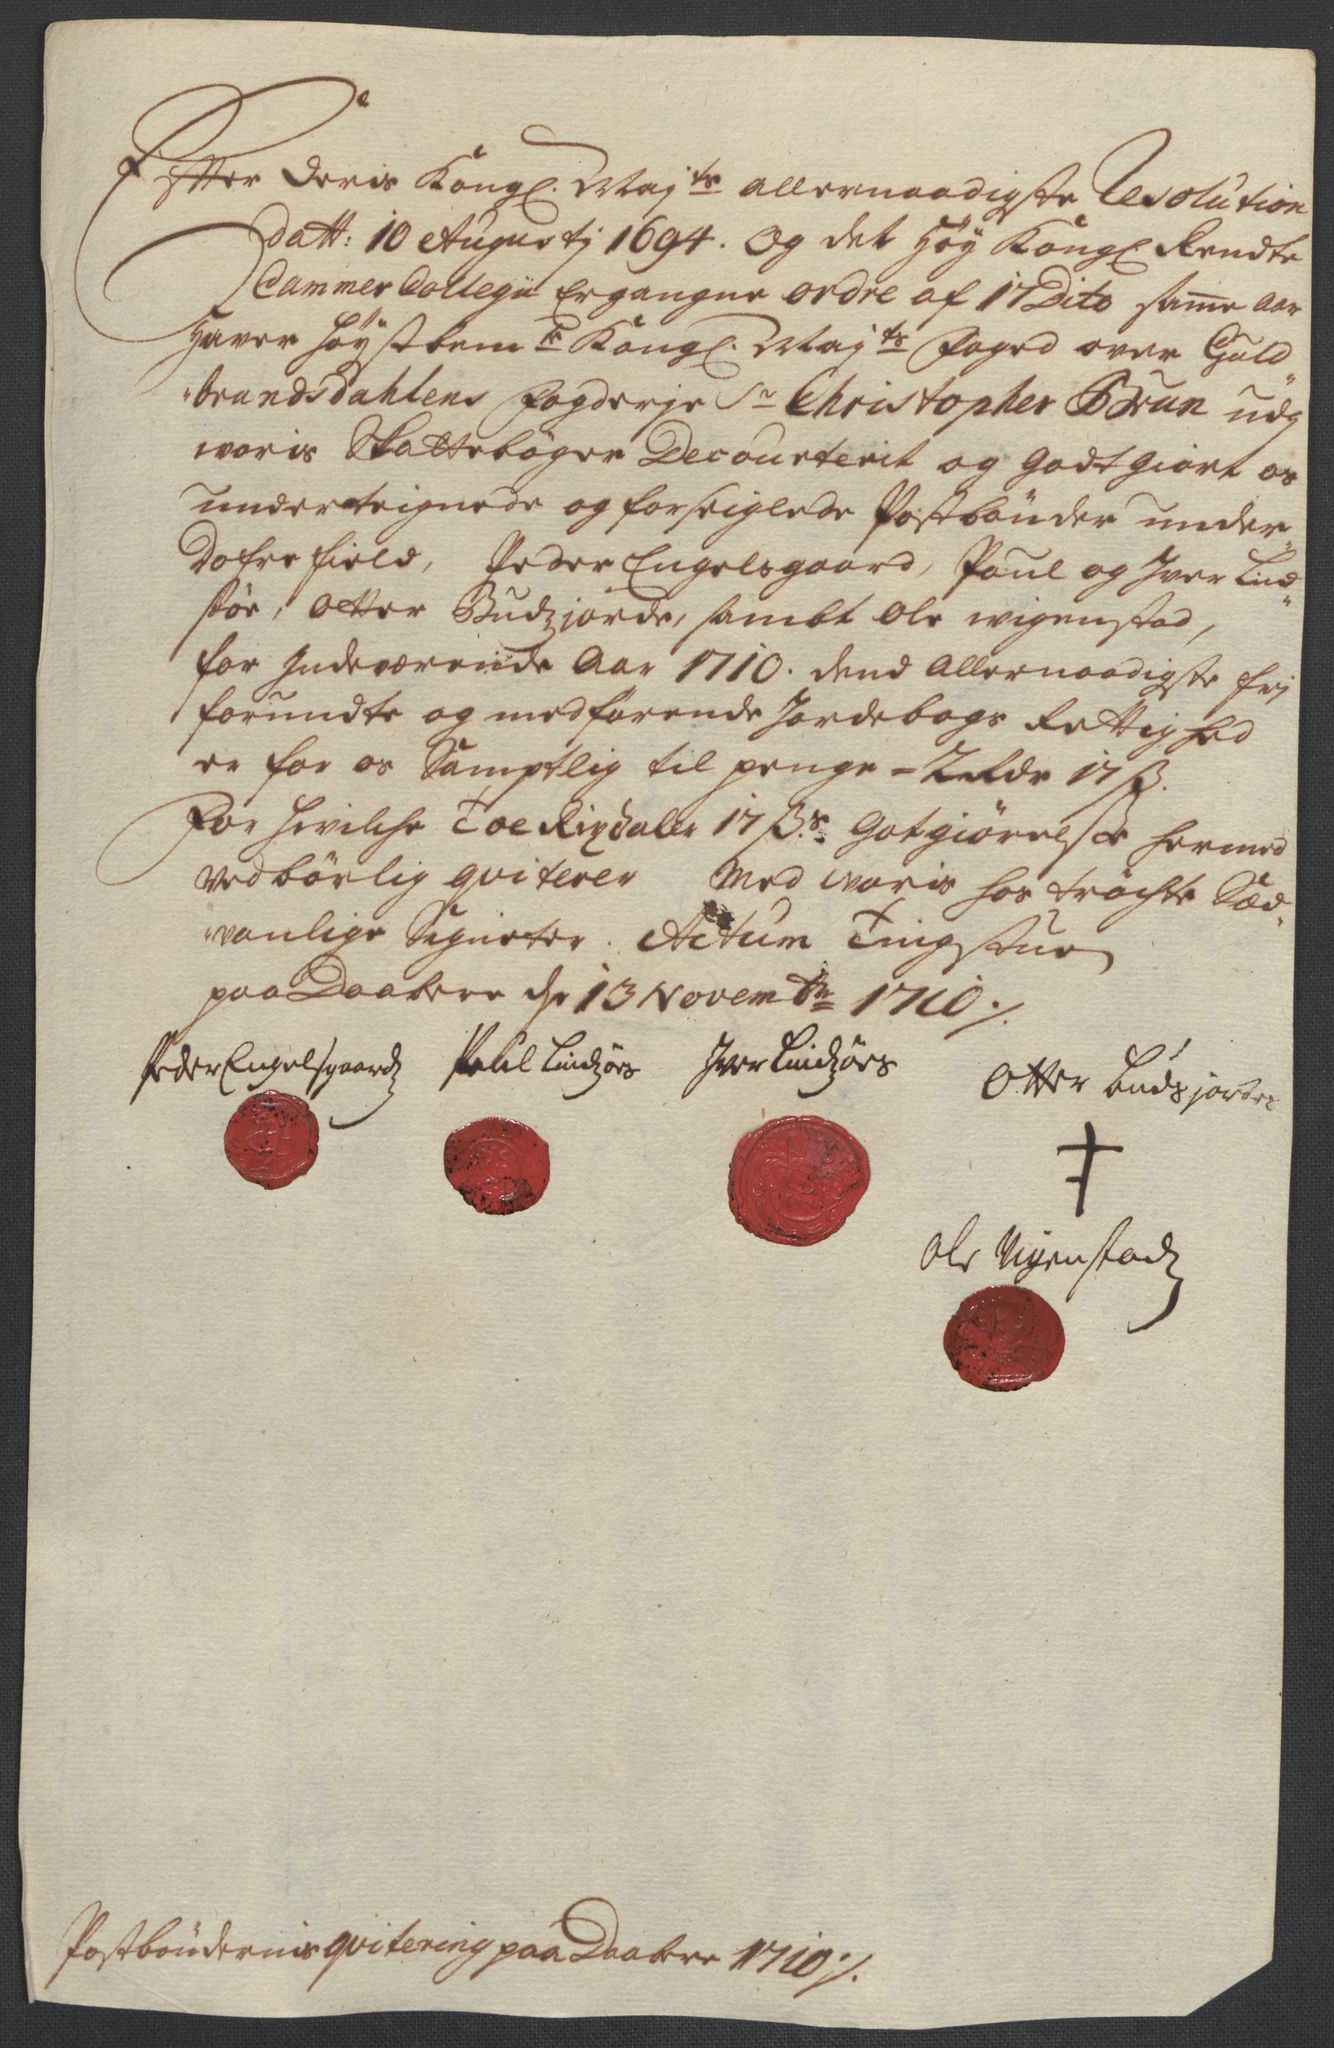 Efter Deris Kongl. Mayts allernaadigste Resolution
datt: 10 Augustj 1694. Og det Høy Kongl Rendte
Cammer Collegii Ergangne ordre af 17 Dito samme Aar
Haver høystbemte Kongl. Mayts Foged over Guld„
„brandsdahlens Fogderje Sr Christopher Brun udj
woris Skattebøger Decourterit og godtgiort os
underteignede og forseiglede Postbønder under„
Dofre field, Peder Engelsgaard, Paul og Jver Lind„
søe, Otter Budzjorde, sambt Ole wigenstad,
for Jndeværende Aar 1710. dend Allernaadigste frj
forundte og medfarende Jordebogs Rettighed
er for os Samptlig til penge - 2 rdr 17 β.
For hvilche Toe Rixdaler 17 β.s godtgiørelse hermed
vedbørlig qviterer Med woris hos tröchte Sæd„
„vanlige Signeter. Actum Tingstue
paa Daabere dn 13 Novembr 1710 ./.
Peder Engelsgaard
Paul Lindsøes
Jver Lindsøes
Otter Budsjorde
Ole Vigenstad
Postbøndernis qvitering paa Daabere 1710 ./.